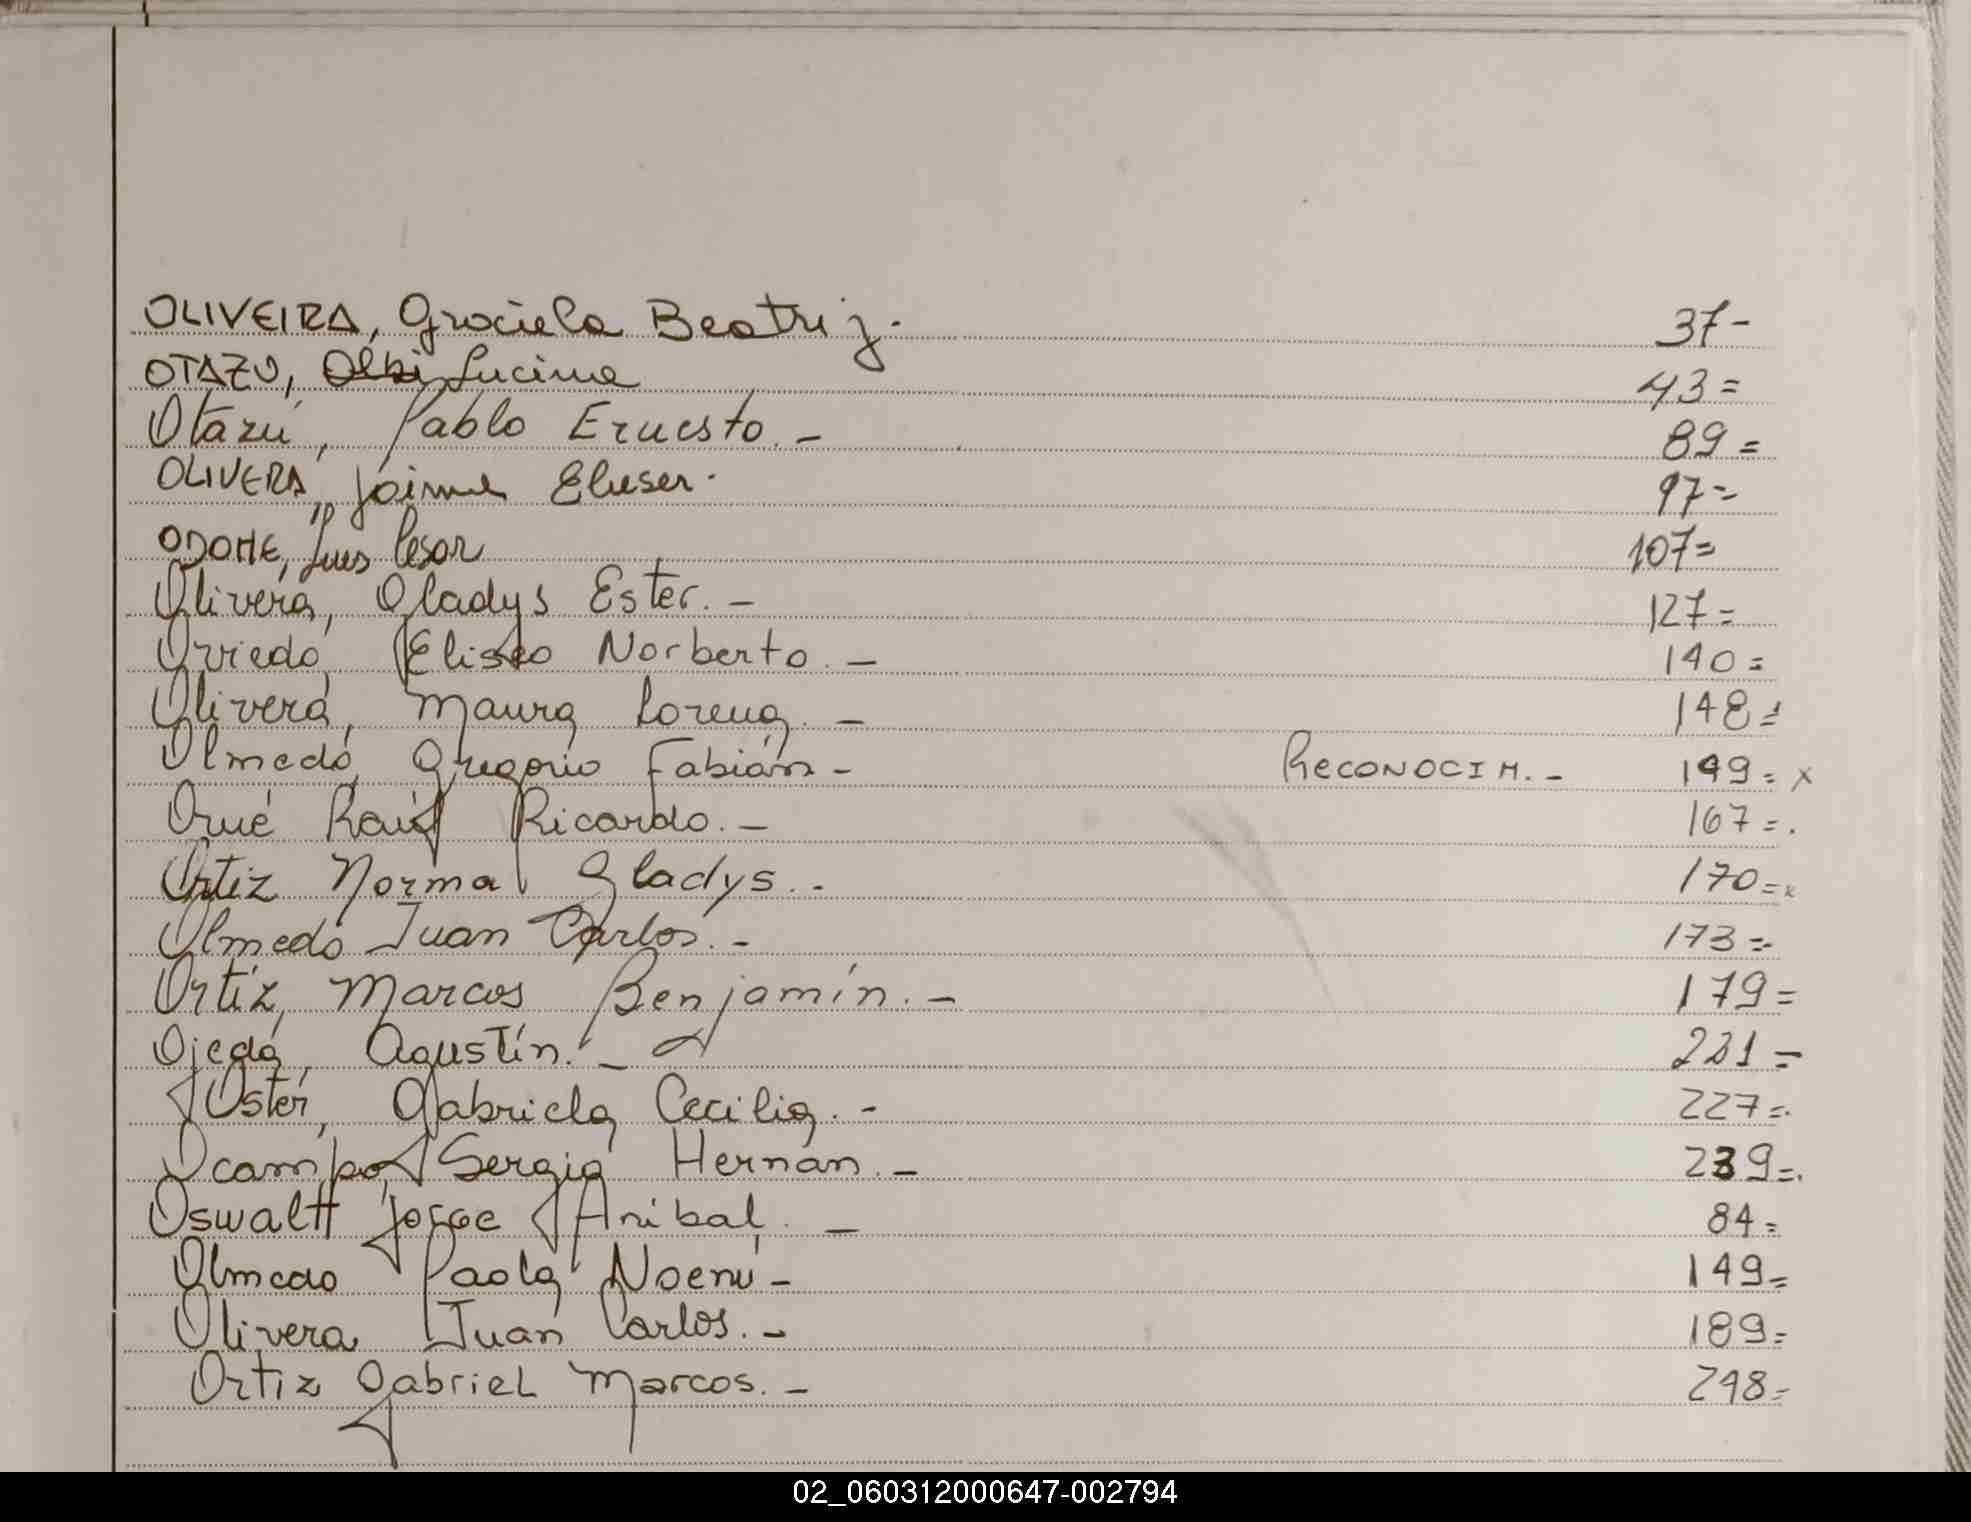 OLIVEIRA, Graciela Beatriz. 37-
OTAZU, Lucina 43=
Otazú, Pablo Ernesto.- 89=
OLIVERA, Jaime Elieser. 97=
ODOME, Luis Cesar 107=
Olivera, Gladys Ester.- 127=
Oviedo, Eliseo Norberto.- 140=
Olivera, Maura Lorena.- 148=
Olmedo, Gregorio Fabián- RECONOCIM.- 199= x
Orué Raúl Ricardo.- 167=.
Ortiz Norma Gladys.- 170=x
Olmedo Juan Carlos.- 173=
Ortíz, Marcos Benjamín.- 179=
Ojeda, Agustín.- 221=
Oster, Gabriela Cecilia.- 227=.
Ocampo, Sergio Hernan.- 239=.
Oswaltt Jorge Anibal.- 84=
Olmedo Paola Noemí- 149=
Olivera Juan Carlos.- 189=
Ortiz Gabriel Marcos.- 248=
02_060312000647-002794